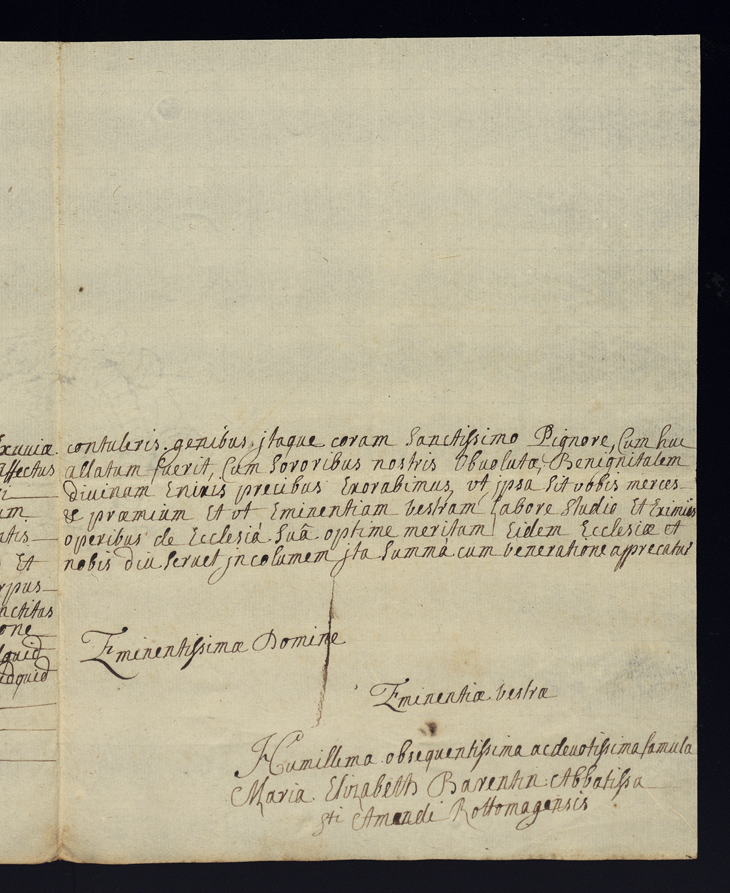 contuleris. genibus, jtaque coram Sanctissimo Pignore, Cum huc
allatum fuerit, Cum Sororibus nostris Obuoluta, Benignitatem
diuinam Enixis precibus Exorabimus, vt jpsa Sit vobis merces
& præmium Et vt Eminentiam vestram Labore Studio Et Eximiis
operibus de Ecclesiâ Suâ optime meritam Eidem Ecclesiæ et
nobis diu Seruet jncolumem jta Summa cum veneratione apprecatur
Eminentissimæ Domine
Eminentiæ vestræ
Humillema obsequentissima ac deuotissima famula
Maria Elizabeth Barentin Abbatissa
sti Amandi Rottomagensis
Exuuiæ
affectus
um
Et
rpus
nctitas
one